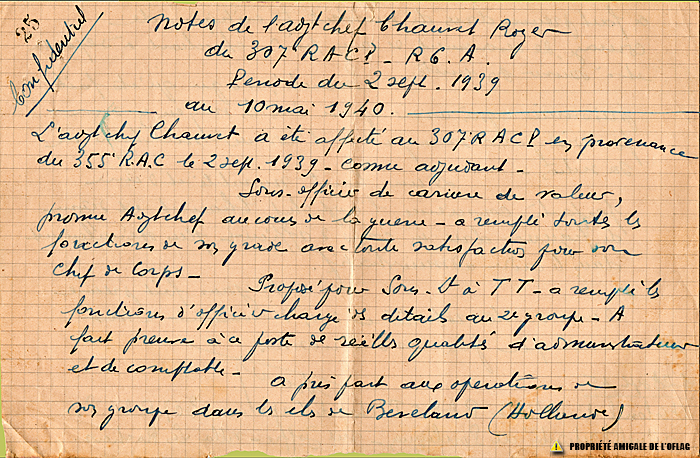 25
Confidentiel
Notes de l'adjtchef Chauvet Roger
du 307 R A C P. - R.G.A.
Periode du 2 sept. 1939
au 10 mai 1940.
L'adjtchef Chauvet a été affecté au 307 R A C P. en provenance
du 355 R.A.C le 2 sept. 1939 - comme adjudant -
Sous-officier de carriere de valeur,
promu Adjtchef au cours de la guerre - a rempli toutes les
fonctions de son grade avec toute satisfaction pour son
Chef de Corps -
Proposé pour Sous-Lt à TT - a rempli les
fonctions d'officier chargé des details au 2e groupe - A
fait preuve à ce poste de réelles qualités d'administrateur
et de comptable -
a pris part aux operations de
son groupe dans les iles de Beveland (Hollande)
PROPRIÉTÉ AMICALE DE L'OFLAG